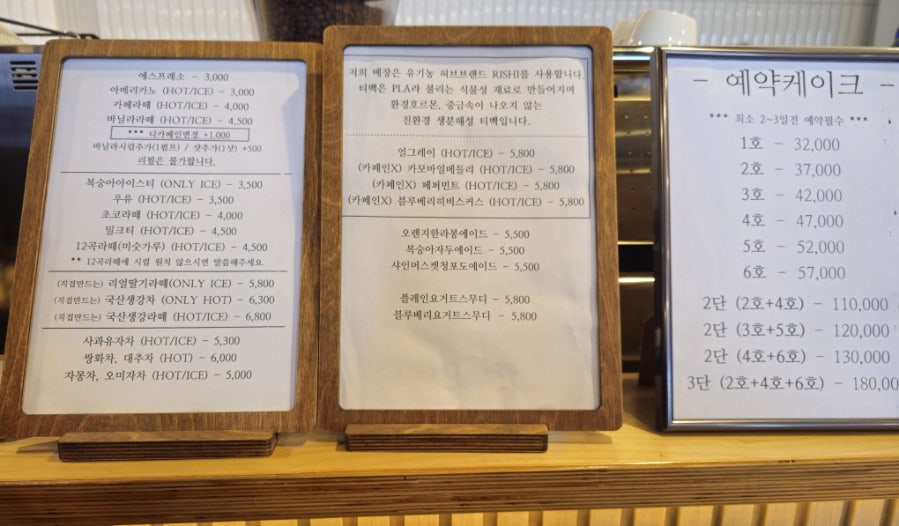 에스프레소 - 3,000
아메리카노 (HOT/ICE) - 3,000
카페라떼 (HOT/ICE) - 4,000
바닐라라떼 (HOT/ICE) - 4,500
*** 디카페인변경 +1,000
바닐라시럽추가(1펌프) / 샷추가(1샷) +500
리필은 불가합니다.
복숭아아이스티 (ONLY ICE) - 3,500
우유 (HOT/ICE) - 3,500
초코라떼 (HOT/ICE) - 4,000
밀크티 (HOT/ICE) - 4,500
12곡라떼(미숫가루) (HOT/ICE) - 4,500
** 12곡라떼에 시럽 원치 않으시면 말씀해주세요.
(직접만드는) 리얼딸기라떼(ONLY ICE) - 5,800
(직접만드는) 국산생강차 (ONLY HOT) - 6,300
(직접만드는) 국산생강라떼 (HOT/ICE) - 6,800
사과유자차 (HOT/ICE) - 5,300
쌍화차, 대추차 (HOT) - 6,000
자몽차, 오미자차 (HOT/ICE) - 5,000
저희 매장은 유기농 허브브랜드 RISHI를 사용합니다.
티백은 PLA라 불리는 식물성 재료로 만들어지며
환경호르몬, 중금속이 나오지 않는
친환경 생분해성 티백입니다.
얼그레이 (HOT/ICE) - 5,800
(카페인X) 카모마일메들리 (HOT/ICE) - 5,800
(카페인X) 페퍼민트 (HOT/ICE) - 5,800
(카페인X) 블루베리히비스커스 (HOT/ICE) - 5,800
오렌지한라봉에이드 - 5,500
복숭아자두에이드 - 5,500
샤인머스켓청포도에이드 - 5,500
플레인요거트스무디 - 5,800
블루베리요거트스무디 - 5,800
- 예약케이크 -
*** 최소 2~3일전 예약필수 ***
1호 - 32,000
2호 - 37,000
3호 - 42,000
4호 - 47,000
5호 - 52,000
6호 - 57,000
2단 (2호+4호) - 110,000
2단 (3호+5호) - 120,000
2단 (4호+6호) - 130,000
3단 (2호+4호+6호) - 180,00